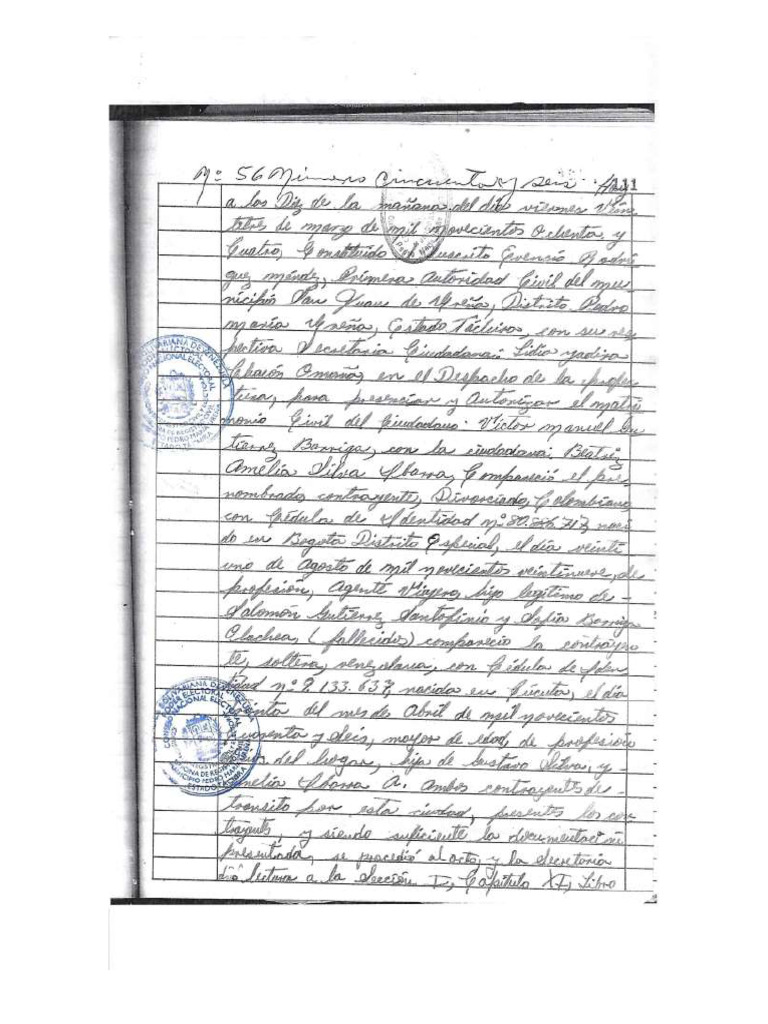 Nº 56 Número Cincuenta y seis. Hoy 111
a las Diez de la mañana del día viernes Vein
titres de marzo de mil novecientos Ochenta y
Cuatro, Constituido suscrito Evencio Rodrí
guez Méndez, Primera Autoridad Civil del mu
nicipio San Juan de Ureña, Distrito Pedro
María Ureña, Estado Táchira, con su res
pectiva Secretaria Ciudadana: Lidia Yadira
Chacón Omaña, en el Despacho de la prefec
tura, para presenciar y Autorizar el matri
monio Civil del Ciudadano: Victor Manuel Gu
tierrez Barriga, con la ciudadana: Beatriz
Amelia Silva Ybarra, Compareció el pre
nombrado contrayente, Divorciado, Colombiano
con Cédula de Identidad nº 80. naci
do en Bogota Distrito Especial, el día veinti
uno de Agosto de mil novecientos veintinueve, de
profesión, Agente Viajero, hijo legítimo de -
Salomón Gutierrez Santofinio y Sofía Barriga
(fallecidos) compareció la contrayen
te, soltera, venezolana, con Cédula de Iden
tidad nº 9.133.637, nacida en Cúcuta, el día
del mes de Abril de mil novecientos
y Seis, mayor de edad, de profesión
del hogar, hija de Gustavo Silva, y -
Amelia Ybarra A. Ambos contrayentes de -
transito por esta ciudad, presentes los con
trayentes, y siendo suficiente la documentación
presentada, se procedió al acto, y la Secretaria
dio lectura a la Sección I, Capítulo XI, Libro
BOLIVARIANA DE VENEZUELA
ELECTORAL
NACIONAL ELECTORAL
PEDRO MARIA
BOLIVARIANA DE VENEZUELA
PODER ELECTORAL
CONSEJO NACIONAL ELECTORAL
OFICINA DE REGISTRO
MUNICIPIO PEDRO MARIA
ESTADO TACHIRA